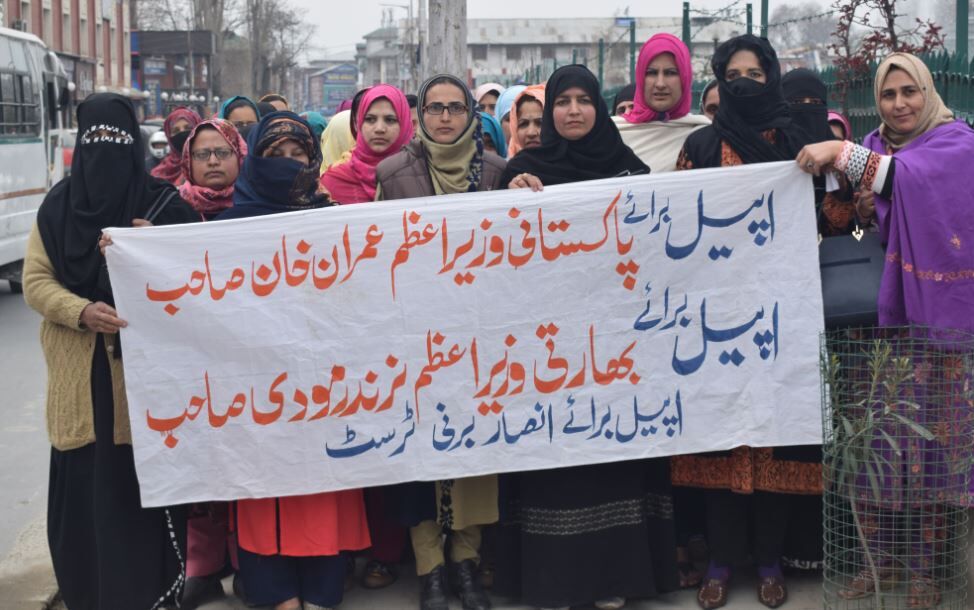 اپیل برائے پاکستانی وزیراعظم عمران خان صاحب
اپیل برائے بھارتی وزیراعظم نرندر مودی صاحب
اپیل برائے انصار برنی ٹرسٹ